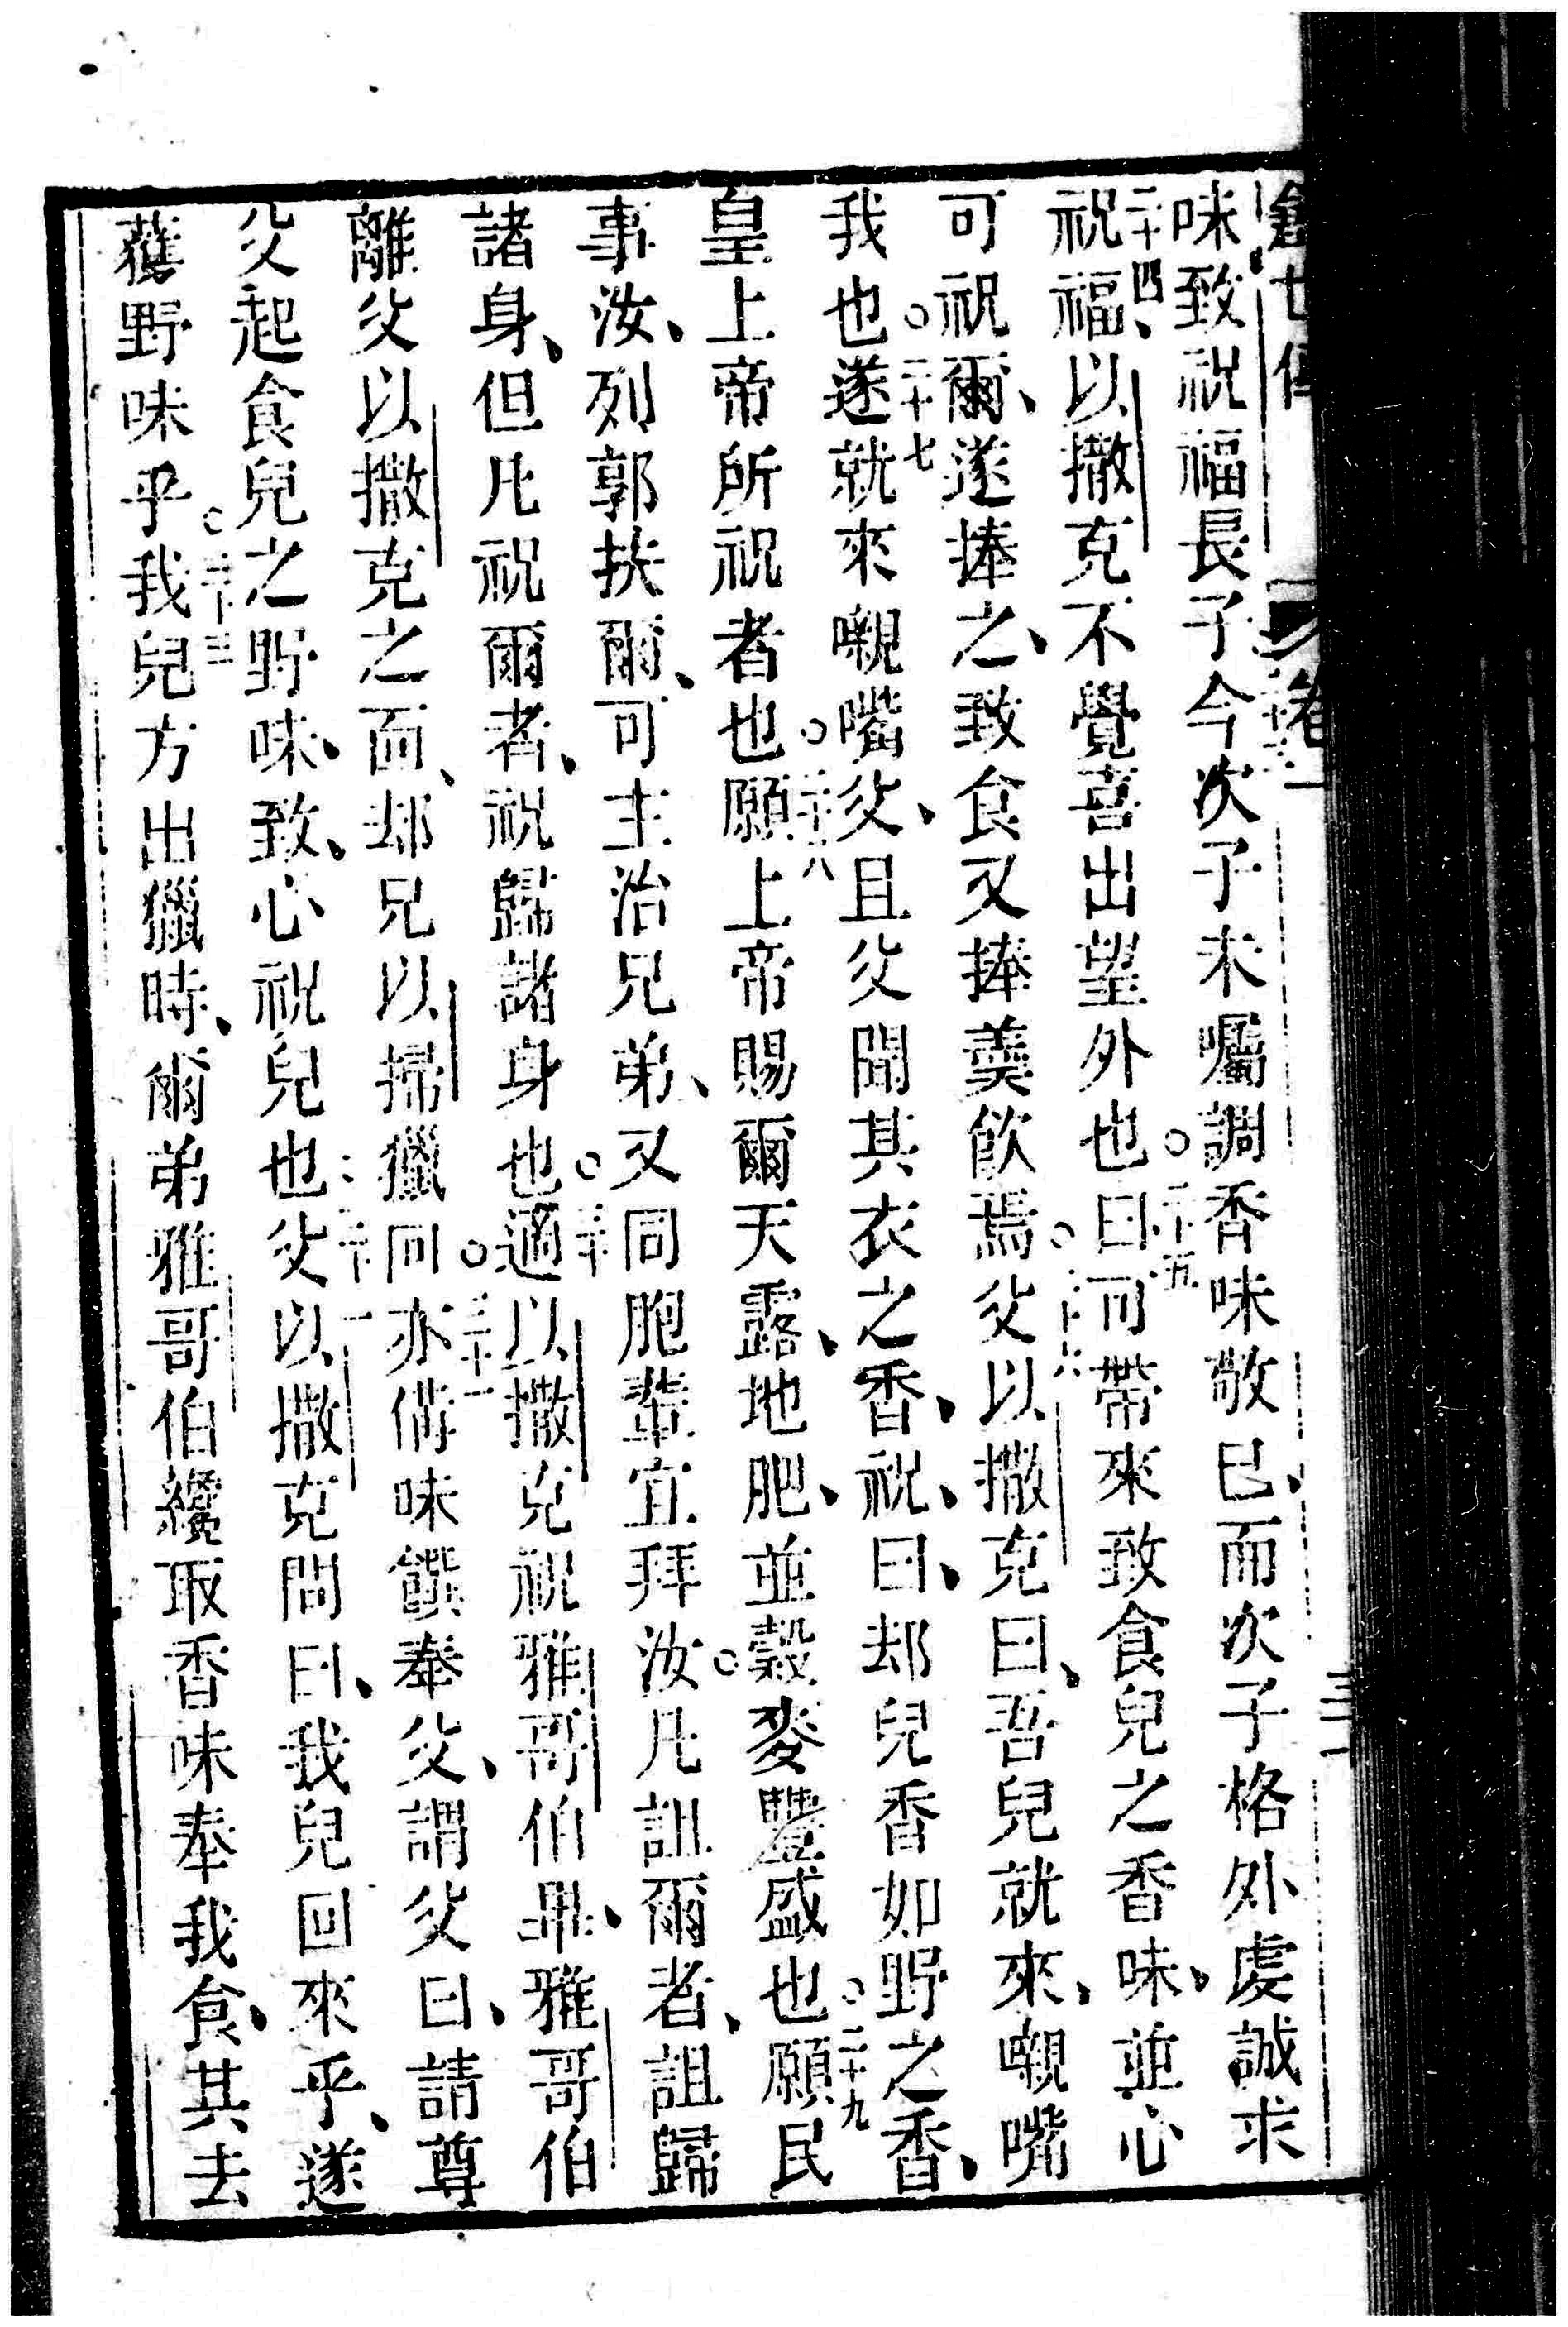 味致祝福長子今次子未囑調香味敬已、而次子格外虔誠求
祝福、以撒克不覺喜出望外也○二十五曰可帶來致食兒之香味、並心
可祝爾、遂捧之、致食又捧羹飲焉○父以撒克曰、吾兒就來、嚫嘴
我也○二十七遂就來嚫嘴父、且父聞其衣之香、祝、曰、却兒香如野之香、
皇上帝所祝者也○二十八願上帝賜爾天露、地肥、並穀麥豐盛也○二十九願民
事汝、列郭扶爾、可主治兄弟、又同胞輩宜拜汝○凡詛爾者、詛歸
諸身、但凡祝爾者、祝歸諸身也○三十適以撒克祝雅哥伯畢、雅哥伯
離父以撒克之面、却兄以掃獵回○三十一亦備味饌奉父、謂父曰、請尊
父起食兒之野味、致、心祝兒也父以撒克問曰、我兒回來乎、遂
獲野味乎○三十三我兒方出獵時、爾弟雅哥伯纔取香味奉我食、其去